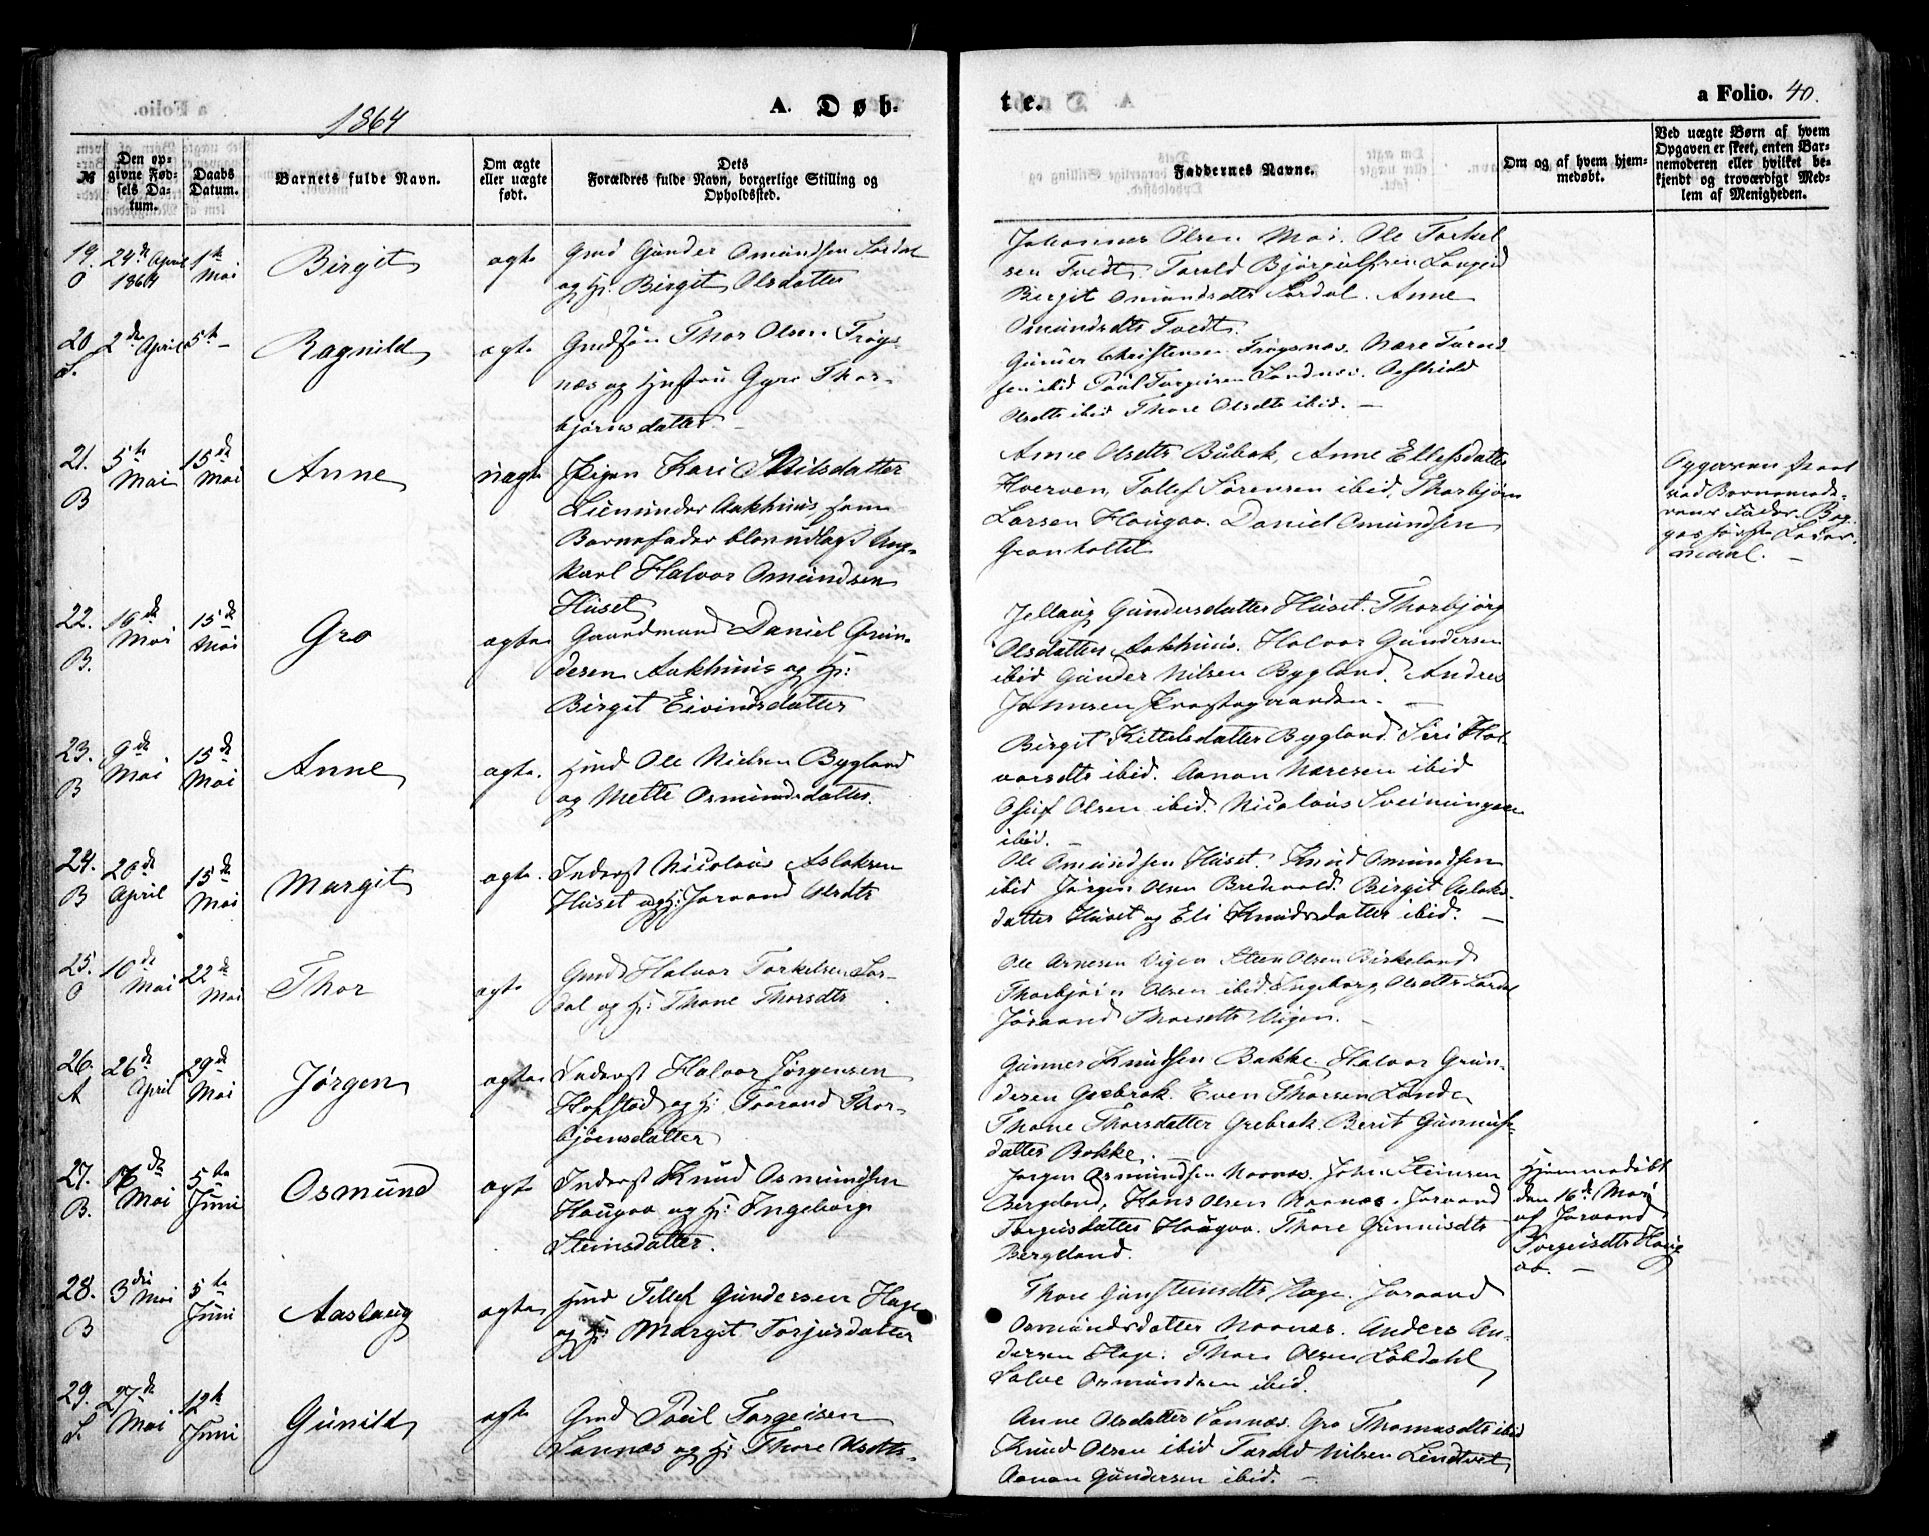 1864
A. Døb-
te.
a Folio. 40.
№
Den op-
givne Fød-
sels Da-
tum.
Daabs
Datum.
Barnets fulde Navn.
Om ægte
eller uægte
født.
Dets
Forældres fulde Navn, borgerlige Stilling og
Opholdssted.
Faddernes Navne.
Om og af hvem hjem-
medøbt.
Ved uægte Børn af hvem
Opgaven er skeet, enten Bar-
nemoderen eller hvilket be-
kjendt og troværdigt Med-
lem af Menigheden.
19.
O
24de April
1864
1te
Mai
Birgit
ægte
Gmd Gunder Omundsen Sordal
og H: Birgit Olsdatter
Johannes Olsen Moi. Ole Torkel
sen Tvedt. Tarald Bjørgulfsen Langeid
Birgit Omundsdtr Sordal. Anne
Omundsdtr Tvedt.
20
S.
2den April
5te
Ragnild
ægte
Gmd Thor Olsen Frøys-
næs og Hustru Gyro Thor-
bjørnsdatter
Gunder Christensen Frøysnæs. Nære Tarald
sen ibid Poul Torgeirsen Sandnes. Aashild
Olsdtr ibid Thore Olsdtr ibid.
21.
B
5te
Mai
15de
Mai
Anne
uægte
Pigen Kari Nilsdatter
Lien under Aakhuus, som
Barnefader blev udlagt Ung-
karl Halvor Omundsen
Huset
Anne Olsdtr Bubak, Anne Ellefsdatter
Hverven, Tallef Sørensen ibid, Thorbjørn
Larsen Haugaa. Daniel Omundsen
Granhottel
Opgaven skeet
ved Barnemode-
rens Fader
22.
B.
10de
Mai
15de
Mai
Gro
ægte
Gaardmand Daniel Gun-
dersen Aakhuus og H:
Birgit Eivindsdatter
Jellaug Gundersdatter Huset. Thorbjørg
Olsdatter Aakhuus. Halvor Gundersen
ibid Gunder Nilsen Bygland. Andres
Jonnsen Præstegaarden.
23.
B
9de
Mai
15de
Mai
Anne
ægte.
Hmd Ole Nielsen Bygland
og Mette Osmundsdatter.
Birgit Kittelsdatter Bygland Siri Hal
vorsdtr ibid. Aanon Næresen ibid
Osuf Olsen ibid. Nicolaus Sveinungsen
ibid.
24.
B
20de
April
15de
Mai
Margit
ægte.
Inderst Nicolaus Aslaksen
Huset og H: Joraand Olsdtr
Ole Omundsen Huset. Knud Omundsen
ibid Jørgen Olsen Bredvold. Birgit Aslaks-
datter Huset og Eli Knudsdatter ibid.
25.
O
10de
Mai
22de
Mai
Thor
ægte
Gmd Halvor Torkelsen Sor-
dal og H: Thone Thorsdtr
Ole Arnesen Vigen Steen Olsen Birkeland
Thorbjørn Olsen ibid. Ingeborg Olsdtr Sordal
Joraand Thorsdtr Vigen.
26.
A
26de
April
29de
Mai
Jørgen
ægte
Inderst Halvor Jørgensen
Hofstad og H: Joraand Thor-
bjørnsdatter
Gunner Knudsen Bakke. Halvor Gun-
dersen Grebrok. Even Thorsen Lande
Thone Thorsdatter Grebrok. Berit Gunnufs-
datter Bakke.
27.
B.
16de
Mai
5te
Juni
Osmund
ægte
Inderst Knud Osmundsen
Haugaa og H: Ingeborg
Steinsdatter.
Jorgen Osmundsen Noonæs. John Steinsen
Bergland, Hans Olsen Noonæs. Joraand
Torgusdatter Haugaa. Thore Gunnusdtr
Bergland.
Hjemmedøbt
den 16de Mai
af Joraand
Torgeisdtr Haug
aa.
28.
B
3die
Mai
5te
Juni
Aaslaug
ægte
Hmd Tellef Gundersen Hage
og H: Margit Torjusdatter
Thore Gunsteinsdtr Hage. Joraand
Osmundsdatter Noonæs. Anders An-
dersen Hage. Thore Olsen Løkdahl
Salve Osmundsen ibid.
29.
S.
27de
Mai
12te
Juni
Gunild
ægte
Gmd Poul Torgeisen
Sannæs og H: Thore Olsdtr
Anne Olsdatter Sannæs. Gro Thomasdtr ibid
Knud Olsen ibid Tarald Nilsen Lindtvet
Aanon Gundersen ibid.